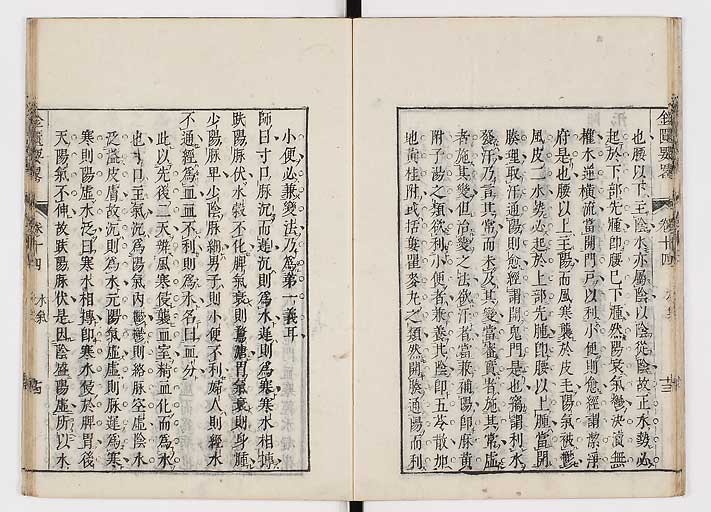 也腰以下主陰水亦屬陰以陰從陰故正水勢必
起於下部先腫即腰已下腫然陽衰氣鬱決瀆無
權水逆橫流當開門戶以利小便則愈經謂潔淨
府是也腰以上主陽而風寒襲於皮毛陽氣被鬱
風皮二水勢必起於上部先腫即腰以上腫當開
腠理取汗通陽則愈經謂開鬼門是也竊謂利水
發汗乃言其常而未及其變當審實者施其常虛
者施其變但治變之法欲汗者當兼補陽即麻黃
附子湯之類欲利小便者兼養其陰即五苓散加
地黃桂附或括蔞瞿麥丸之類然開腠通陽而利
小便必兼變法乃為第一義耳
師曰寸口脈沉而遲沉則為水遲則為寒寒水相摶
趺陽脈伏水穀不化脾氣衰則鶩溏胃氣衰則身腫
少陽脈卑少陰脈細男子則小便不利婦人則經水
不通經為血血不利則為水名曰血分
此以先後二天雖風寒侵襲血室精血化而為水
也寸口主氣沉為陽氣內鬱鬱則將脈空虛陰水
泛溢皮膚故沉則為水元陽氣虛虛則脈遲為寒
寒則陽虛水泛曰寒水相摶即寒水侵於脾胃後
天陽氣不伸故趺陽脈伏是因陰盛陽虛所以水
金匱要畧 卷十四 水氣 十三
金匱要畧 卷十四 水氣 十四